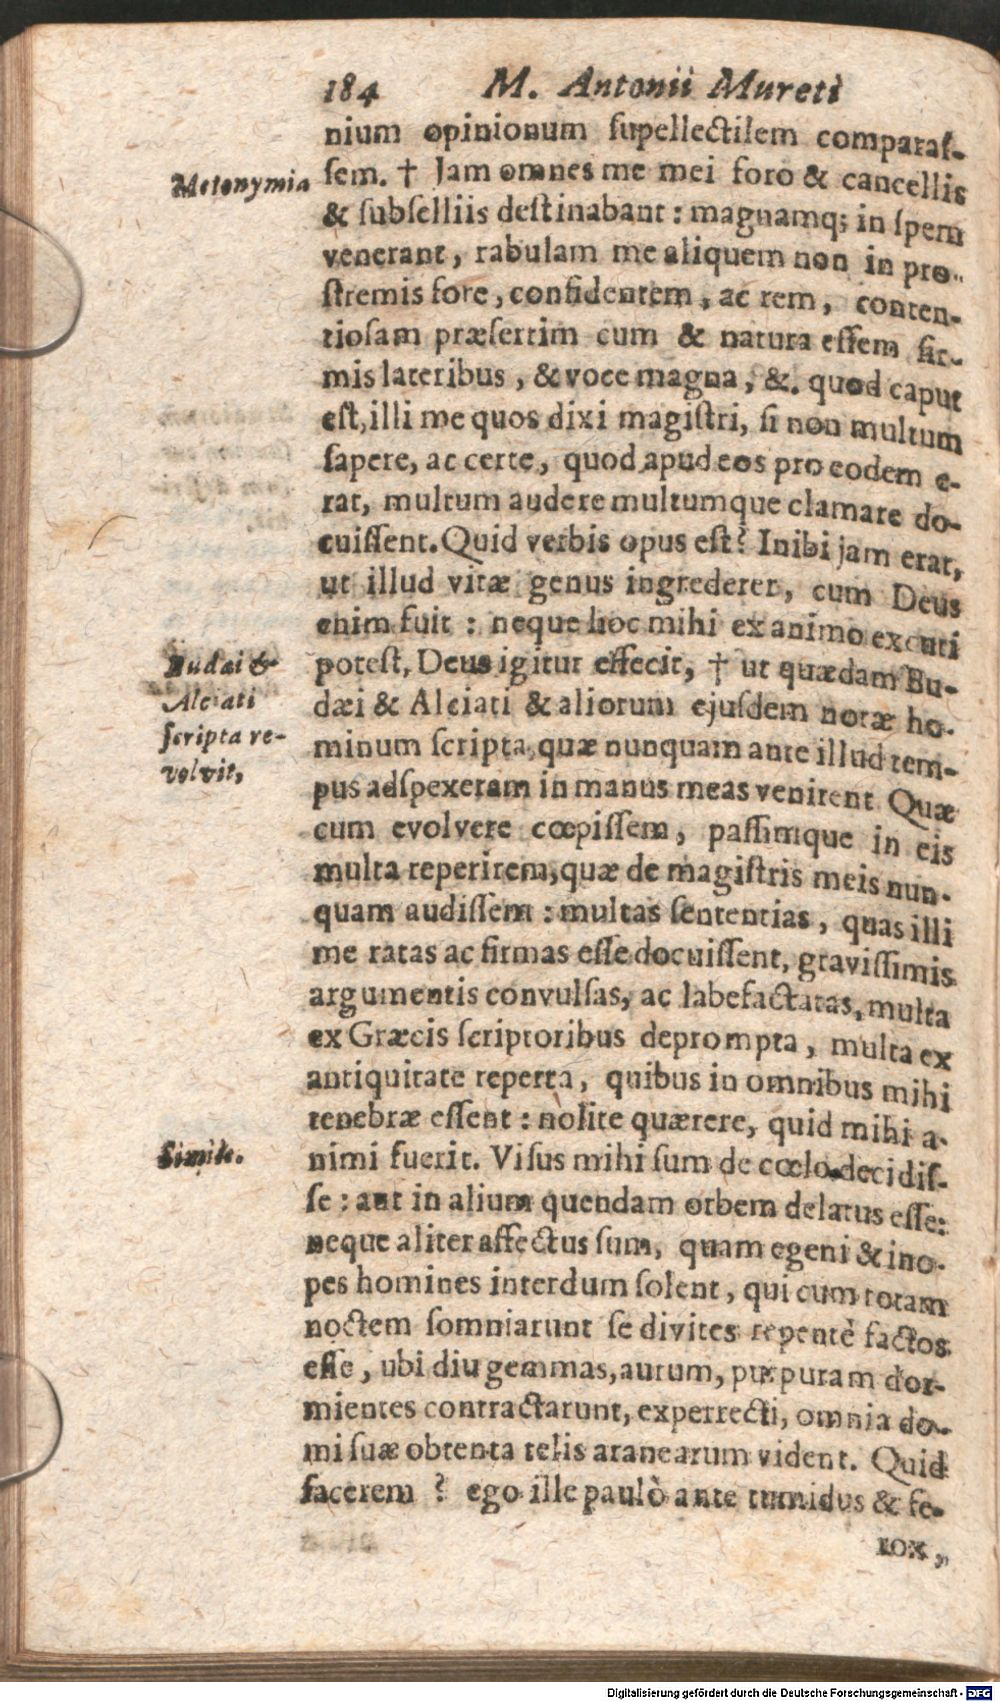 184 M. Antonii Mureti
nium opinionum supellectilem comparas-
Metonymia
sem. † Jam omnes me mei foro & cancellis
& subselliis destinabant : magnamq; in spem
venerant, rabulam me aliquem non in po-
stremis fore, confidentem, ac rem, conten-
tiosam præsertim cum & natura essem fir-
mis lateribus, & voce magna, &. quod caput
est, illi me quos dixi magistri, si non multum
sapere, ac certe, quod apud eos pro eodem e-
rat, multum audere multumque clamare do-
cuissent. Quid verbis opus est? Inibi jam erat,
ut illud vitæ genus ingrederer, cum Deus
enim fuit : neque hoc mihi ex animo excuti
Budæi &
Alciati
scripta re-
volvit,
potest, Deus igitur effecit, † ut quædam Bu-
dæi & Alciati & aliorum ejusdem notæ ho-
minum scripta, quæ nunquam ante illud tem-
pus adspexeram in manus meas venirent Quæ
cum evolvere cœpissem, passimque in eis
multa reperirem, quæ de magistris meis nun-
quam audissem : multas sententias, quas illi
me ratas ac firmas esse docuissent, gravissimis
argumentis convulsas, ac labefactatas, multa
ex Græcis scriptoribus deprompta, multa ex
antiquitate reperta, quibus in omnibus mihi
tenebræ essent : nolite quærere, quid mihi a-
Simile.
nimi fuerit. Visus mihi sum de cœlo decidis-
se : aut in alium quendam orbem delatus esse:
neque aliter affectus sum, quam egeni & ino-
pes homines interdum solent, qui cum totam
noctem somniarunt se divites repentè factos
esse, ubi diu gemmas, aurum, purpuram dor-
mientes contractarunt, experrecti, omnia do-
mi suæ obtenta telis aranearum vident. Quid
facerem ? ego ille paulò ante tumidus & fe-
rox,
Digitalisierung gefördert durch die Deutsche Forschungsgemeinschaft - DFG